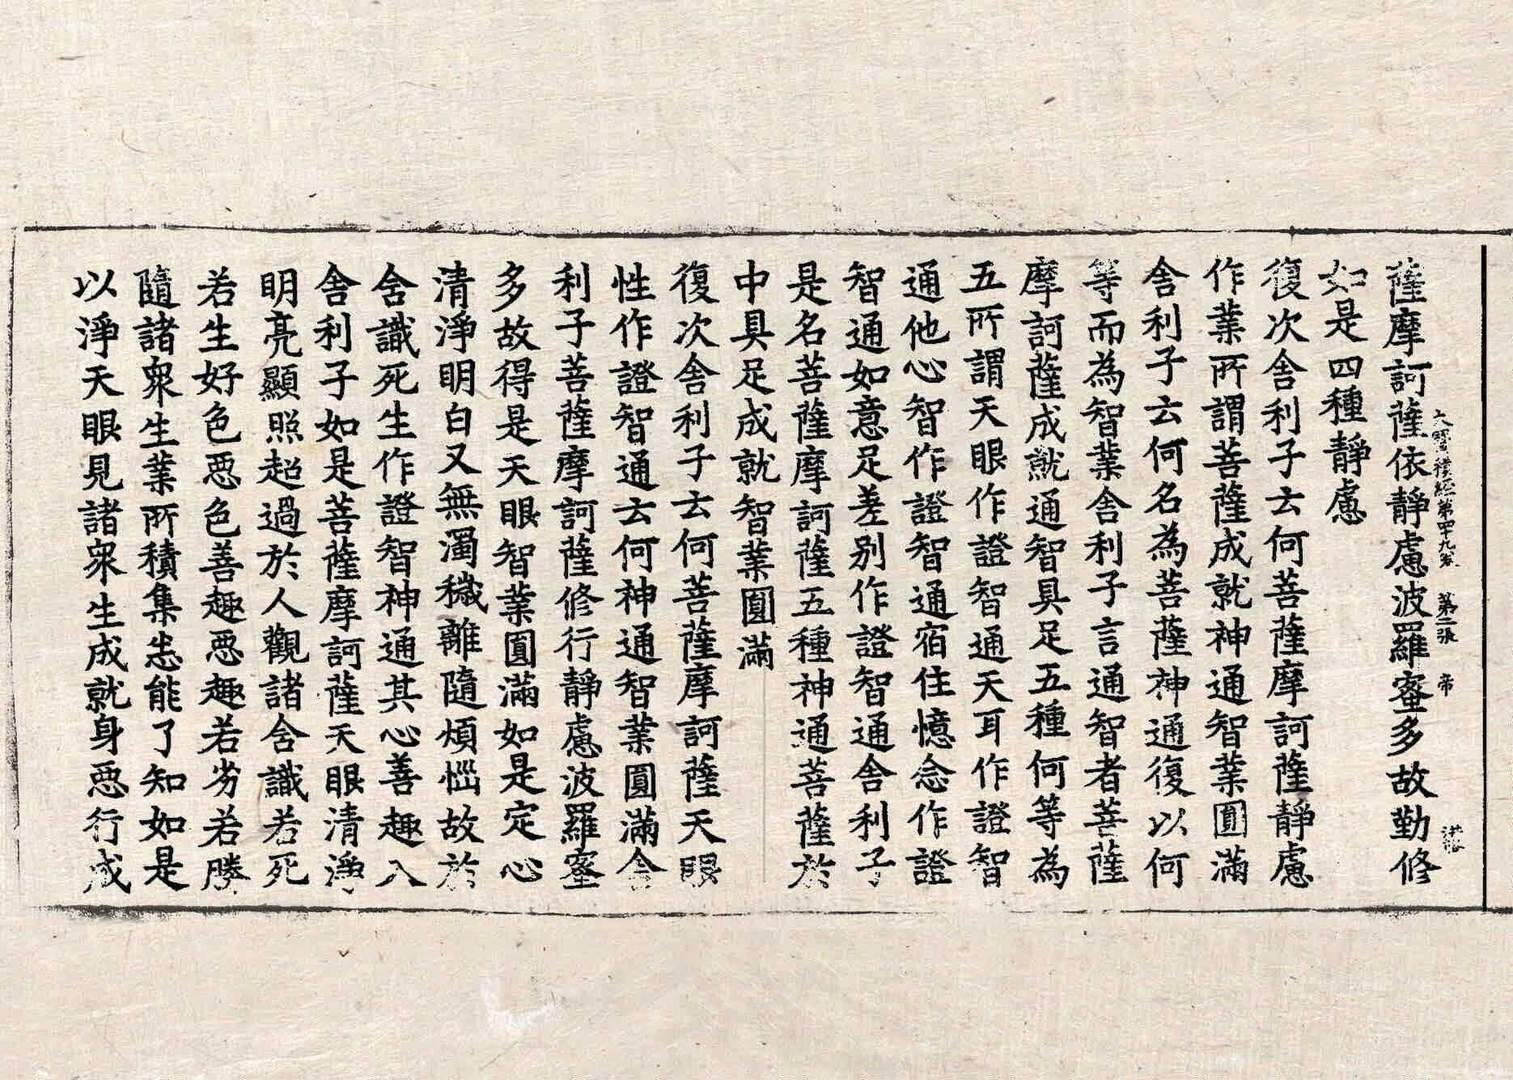 大寶積經第四十九卷 第二張 帝
薩摩訶薩依靜慮波羅蜜多故勤修
如是四種靜慮
復次舍利子云何菩薩摩訶薩靜慮
作業所謂菩薩成就神通智業圓滿
舍利子云何名為菩薩神通復以何
等而為智業舍利子言通智者菩薩
摩訶薩成就通智具足五種何等為
五所謂天眼作證智通天耳作證智
通他心智作證智通宿住憶念作證
智通如意足差別作證智通舍利子
是名菩薩摩訶薩五種神通菩薩於
中具足成就智業圓滿
復次舍利子云何菩薩摩訶薩天眼
性作證智通云何神通智業圓滿舍
利子菩薩摩訶薩修行靜慮波羅蜜
多故得是天眼智業圓滿如是定心
清淨明白又無濁穢離隨煩惱故於
舍識死生作證智神通其心善趣入
舍利子如是菩薩摩訶薩天眼清淨
明亮顯照超過於人觀諸含識若死
若生好色惡色善趣惡趣若劣若勝
隨諸眾生業所積集悉能了知如是
以淨天眼見諸眾生成就身惡行成